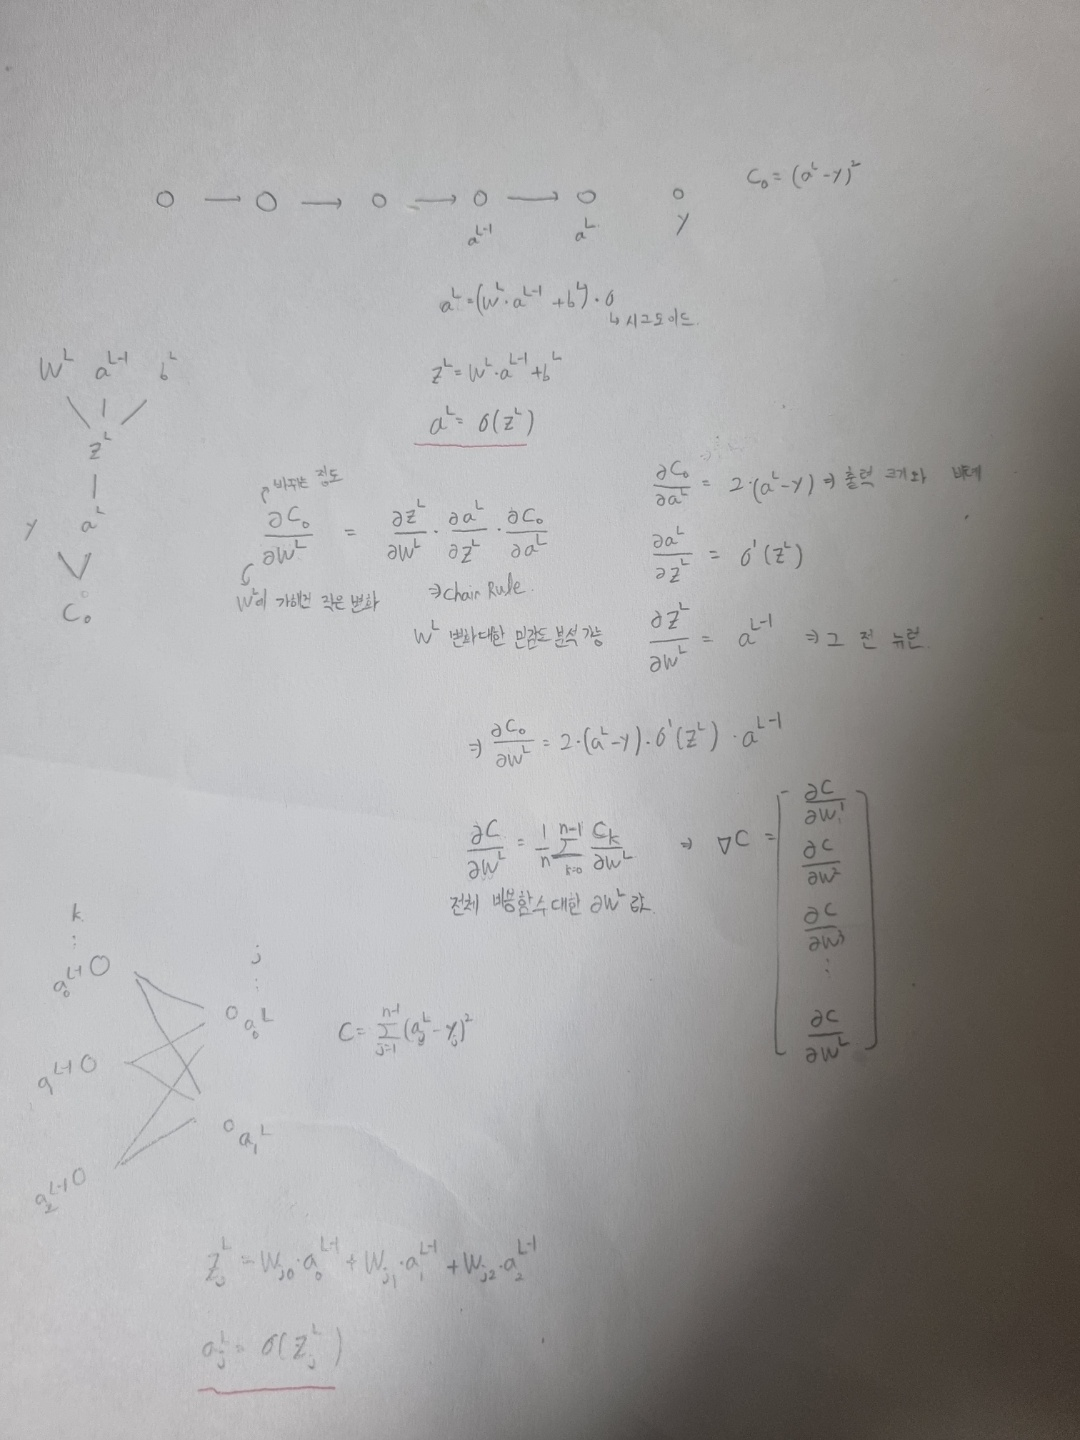 C₀ = (a^L - y)²
a^(L-1) a^L y
a^L = (w^L · a^(L-1) + b^L) · σ
↳ 시그모이드.
z^L = w^L · a^(L-1) + b^L
a^L = σ(z^L)
w^L a^(L-1) b^L
z^L
y a^L
C₀
바꾸는 정도
∂C₀/∂w^L = ∂z^L/∂w^L · ∂a^L/∂z^L · ∂C₀/∂a^L
w^L이 가해진 작은 변화
⇒ Chain Rule.
w^L 변화대한 민감도 분석 가능
∂C₀/∂a^L = 2·(a^L - y) ⇒ 출력 크기와 비례
∂a^L/∂z^L = σ'(z^L)
∂z^L/∂w^L = a^(L-1) ⇒ 그 전 뉴런.
⇒ ∂C₀/∂w^L = 2·(a^L - y)·σ'(z^L) · a^(L-1)
∂C/∂w^L = 1/n Σ_(k=0)^(n-1) C_k/∂w^L ⇒ ∇C =
전체 비용함수 대한 ∂w^L 값.
∂C/∂w¹
∂C/∂w²
∂C/∂w³
⋮
∂C/∂w^L
k
⋮
a₀^(L-1)
a^(L-1)
a₂^(L-1)
j
⋮
a₀^L
a₁^L
C = Σ_(j=1)^(n-1) (a_j^L - y_j)²
z_j^L = w_j0 · a₀^(L-1) + w_j1 · a₁^(L-1) + w_j2 · a₂^(L-1)
a_j^L = σ(z_j^L)